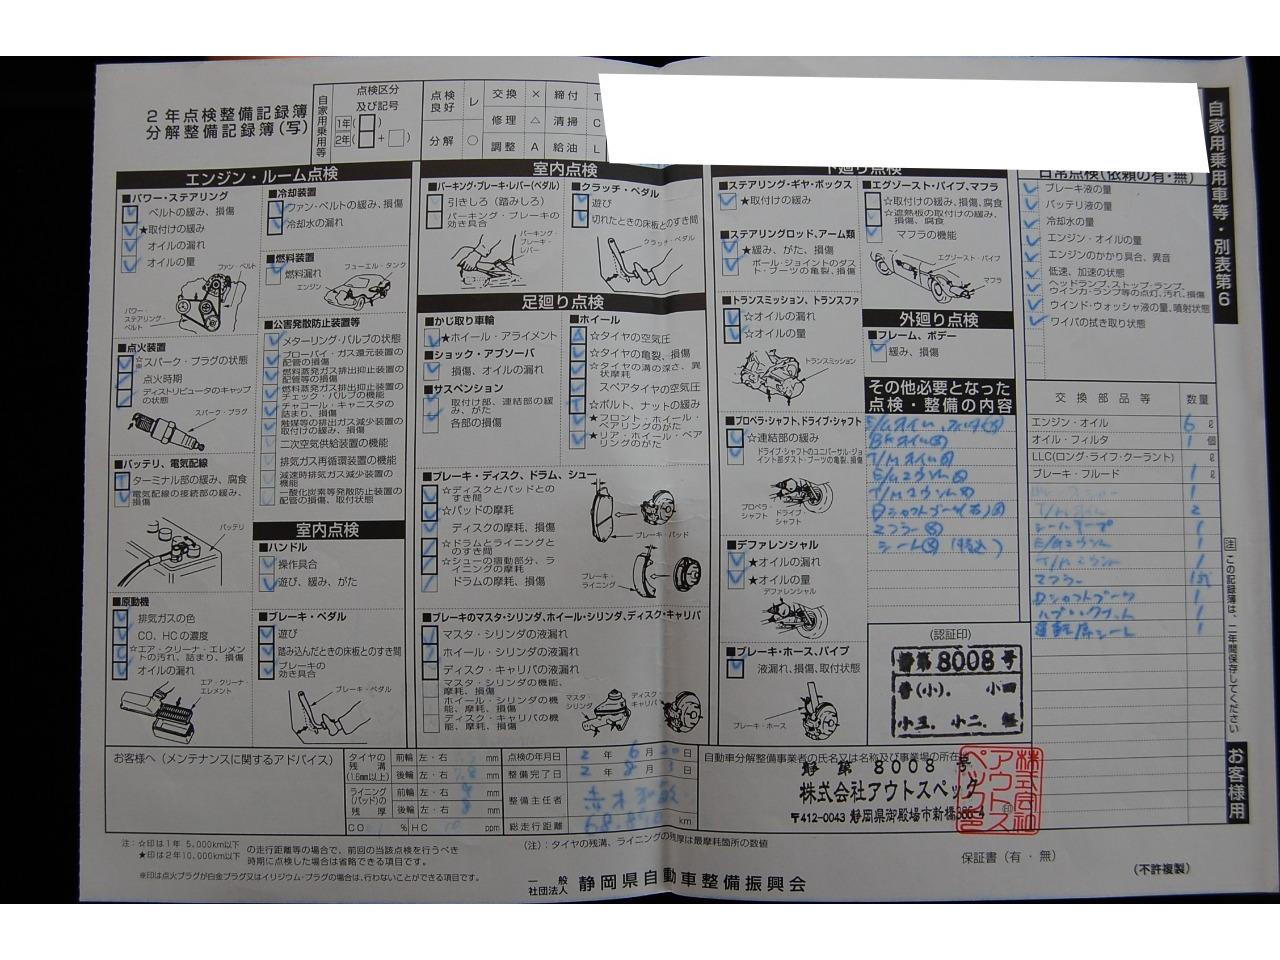 2年点検整備記録簿
分解整備記録簿(写)
自家用乗用等
点検区分
及び記号
1年( )
2年( + )
点検良好 レ
交換 × 締付 T
修理 △ 清掃 C
分解 ○
調整 A 給油 L
自家用乗用車等・別表第6
エンジン・ルーム点検
■パワー・ステアリング
ベルトの緩み、損傷
★取付けの緩み
オイルの漏れ
オイルの量
ファン・ベルト
パワー・ステアリング・ベルト
■点火装置
☆スパーク・プラグの状態
点火時期
ディストリビュータのキャップの状態
スパーク・プラグ
■バッテリ、電気配線
ターミナル部の緩み、腐食
電気配線の接続部の緩み、損傷
バッテリ
■原動機
排気ガスの色
CO、HCの濃度
☆エア・クリーナ・エレメントの汚れ、詰まり、損傷
オイルの漏れ
エア・クリーナ・エレメント
■冷却装置
ファン・ベルトの緩み、損傷
冷却水の漏れ
■燃料装置
燃料漏れ
フューエル・タンク
エンジン
■公害発散防止装置等
メターリング・バルブの状態
ブローバイ・ガス還元装置の配管の損傷
燃料蒸発ガス排出抑止装置の配管等の損傷
燃料蒸発ガス排出抑止装置のチェック・バルブの機能
チャコール・キャニスタの詰まり、損傷
触媒等の排出ガス減少装置の取付けの緩み、損傷
二次空気供給装置の機能
排気ガス再循環装置の機能
減速時排気ガス減少装置の機能
一酸化炭素等発散防止装置の配管の損傷、取付状態
室内点検
■ハンドル
操作具合
遊び、緩み、がた
■ブレーキ・ペダル
遊び
踏み込んだときの床板とのすき間
ブレーキの効き具合
ブレーキ・ペダル
室内点検
■パーキング・ブレーキ・レバー(ペダル)
引きしろ(踏みしろ)
パーキング・ブレーキの効き具合
パーキング・ブレーキ・レバー
■クラッチ・ペダル
遊び
切れたときの床板とのすき間
クラッチ・ペダル
足廻り点検
■かじ取り車輪
★ホイール・アライメント
■ショック・アブソーバ
損傷、オイルの漏れ
■サスペンション
取付け部、連結部の緩み、がた
各部の損傷
■ホイール
☆タイヤの空気圧
☆タイヤの亀裂、損傷
☆タイヤの溝の深さ、異状摩耗
スペアタイヤの空気圧
☆ボルト、ナットの緩み
★フロント・ホイール・ベアリングのがた
★リア・ホイール・ベアリングのがた
■ブレーキ・ディスク、ドラム、シュー
☆ディスクとパッドとのすき間
☆パッドの摩耗
ディスクの摩耗、損傷
☆ドラムとライニングとのすき間
☆シューの摺動部分、ライニングの摩耗
ドラムの摩耗、損傷
ブレーキ・パッド
ブレーキ・ライニング
■ブレーキのマスタ・シリンダ、ホイール・シリンダ、ディスク・キャリパ
マスタ・シリンダの液漏れ
ホイール・シリンダの液漏れ
ディスク・キャリパの液漏れ
マスタ・シリンダの機能、摩耗、損傷
ホイール・シリンダの機能、摩耗、損傷
ディスク・キャリパの機能、摩耗、損傷
マスタ・シリンダ
ディスク・キャリパ
下廻り点検
■ステアリング・ギヤ・ボックス
★取付けの緩み
■ステアリングロッド、アーム類
★緩み、がた、損傷
ボール・ジョイントのダスト・ブーツの亀裂、損傷
■トランスミッション、トランスファ
☆オイルの漏れ
☆オイルの量
トランスミッション
■プロペラ・シャフト、ドライブ・シャフト
☆連結部の緩み
ドライブ・シャフトのユニバーサル・ジョイント部ダスト・ブーツの亀裂、損傷
プロペラ・シャフト
ドライブ・シャフト
■デファレンシャル
★オイルの漏れ
★オイルの量
デファレンシャル
■ブレーキ・ホース、パイプ
液漏れ、損傷、取付状態
ブレーキ・ホース
■エグゾースト・パイプ、マフラ
☆取付けの緩み、損傷、腐食
☆遮熱板の取付けの緩み、損傷、腐食
マフラの機能
エグゾースト・パイプ
マフラ
外廻り点検
■フレーム、ボデー
緩み、損傷
その他必要となった
点検・整備の内容
マフラー
(認証印)
静第8008号
普(小). 小四
小三. 小二. 軽
日常点検(依頼の有・無)
ブレーキ液の量
バッテリ液の量
冷却水の量
エンジン・オイルの量
エンジンのかかり具合、異音
低速、加速の状態
ヘッドランプ、ストップ・ランプ、ウインカ・ランプ等の点灯、汚れ、損傷
ウインド・ウォッシャ液の量、噴射状態
ワイパの拭き取り状態
交換部品等 数量
エンジン・オイル 6 ℓ
オイル・フィルタ 1 個
LLC(ロング・ライフ・クーラント) ℓ
ブレーキ・フルード 1
T/Mオイル 2
シールテープ 1
E/Gマウント 1
T/Mマウント 1
マフラー
Dシャフトブーツ 1
ハブロックナット 1
運転席シート 1
注 この記録簿は、二年間保存してください
お客様用
お客様へ(メンテナンスに関するアドバイス)
タイヤの残溝(1.6mm以上) 前輪 左・右 mm
後輪 左・右 mm
ライニング(パッド)の残厚 前輪 左・右 mm
後輪 左・右 8 mm
CO % HC ppm
点検の年月日 2年6月20日
整備完了日 2年8月3日
整備主任者
総走行距離 km
自動車分解整備事業者の氏名又は名称及び事業場の所在地
静 第 8008 号
株式会社アウトスペック
〒412-0043 静岡県御殿場市新橋866-4
株式会社アウトスペック
注:☆印は1年 5,000km以下
★印は2年10,000km以下
の走行距離等の場合で、前回の当該点検を行うべき時期に点検した場合は省略できる項目です。
※印は点火プラグが白金プラグ又はイリジウム・プラグの場合は、行わないことができる項目です。
(注):タイヤの残溝、ライニングの残厚は最摩耗箇所の数値
保証書(有・無)
一般社団法人 静岡県自動車整備振興会
(不許複製)